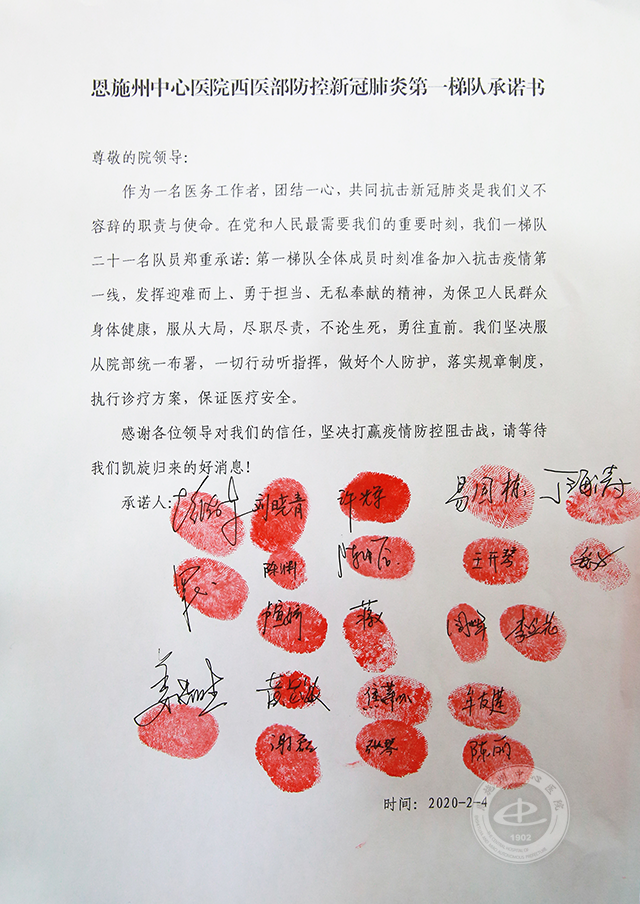 恩施州中心医院西医部防控新冠肺炎第一梯队承诺书
尊敬的院领导：
作为一名医务工作者，团结一心，共同抗击新冠肺炎是我们义不
容辞的职责与使命。在党和人民最需要我们的重要时刻，我们一梯队
二十一名队员郑重承诺：第一梯队全体成员时刻准备加入抗击疫情第
一线，发挥迎难而上、勇于担当、无私奉献的精神，为保卫人民群众
身体健康，服从大局，尽职尽责，不论生死，勇往直前。我们坚决服
从院部统一布署，一切行动听指挥，做好个人防护，落实规章制度，
执行诊疗方案，保证医疗安全。
感谢各位领导对我们的信任，坚决打赢疫情防控阻击战，请等待
我们凯旋归来的好消息！
承诺人： 刘晓青 许辉
陈俐 王开琴
谢磊 张琴 陈丽
时间：2020-2-4
州中心医院
1902